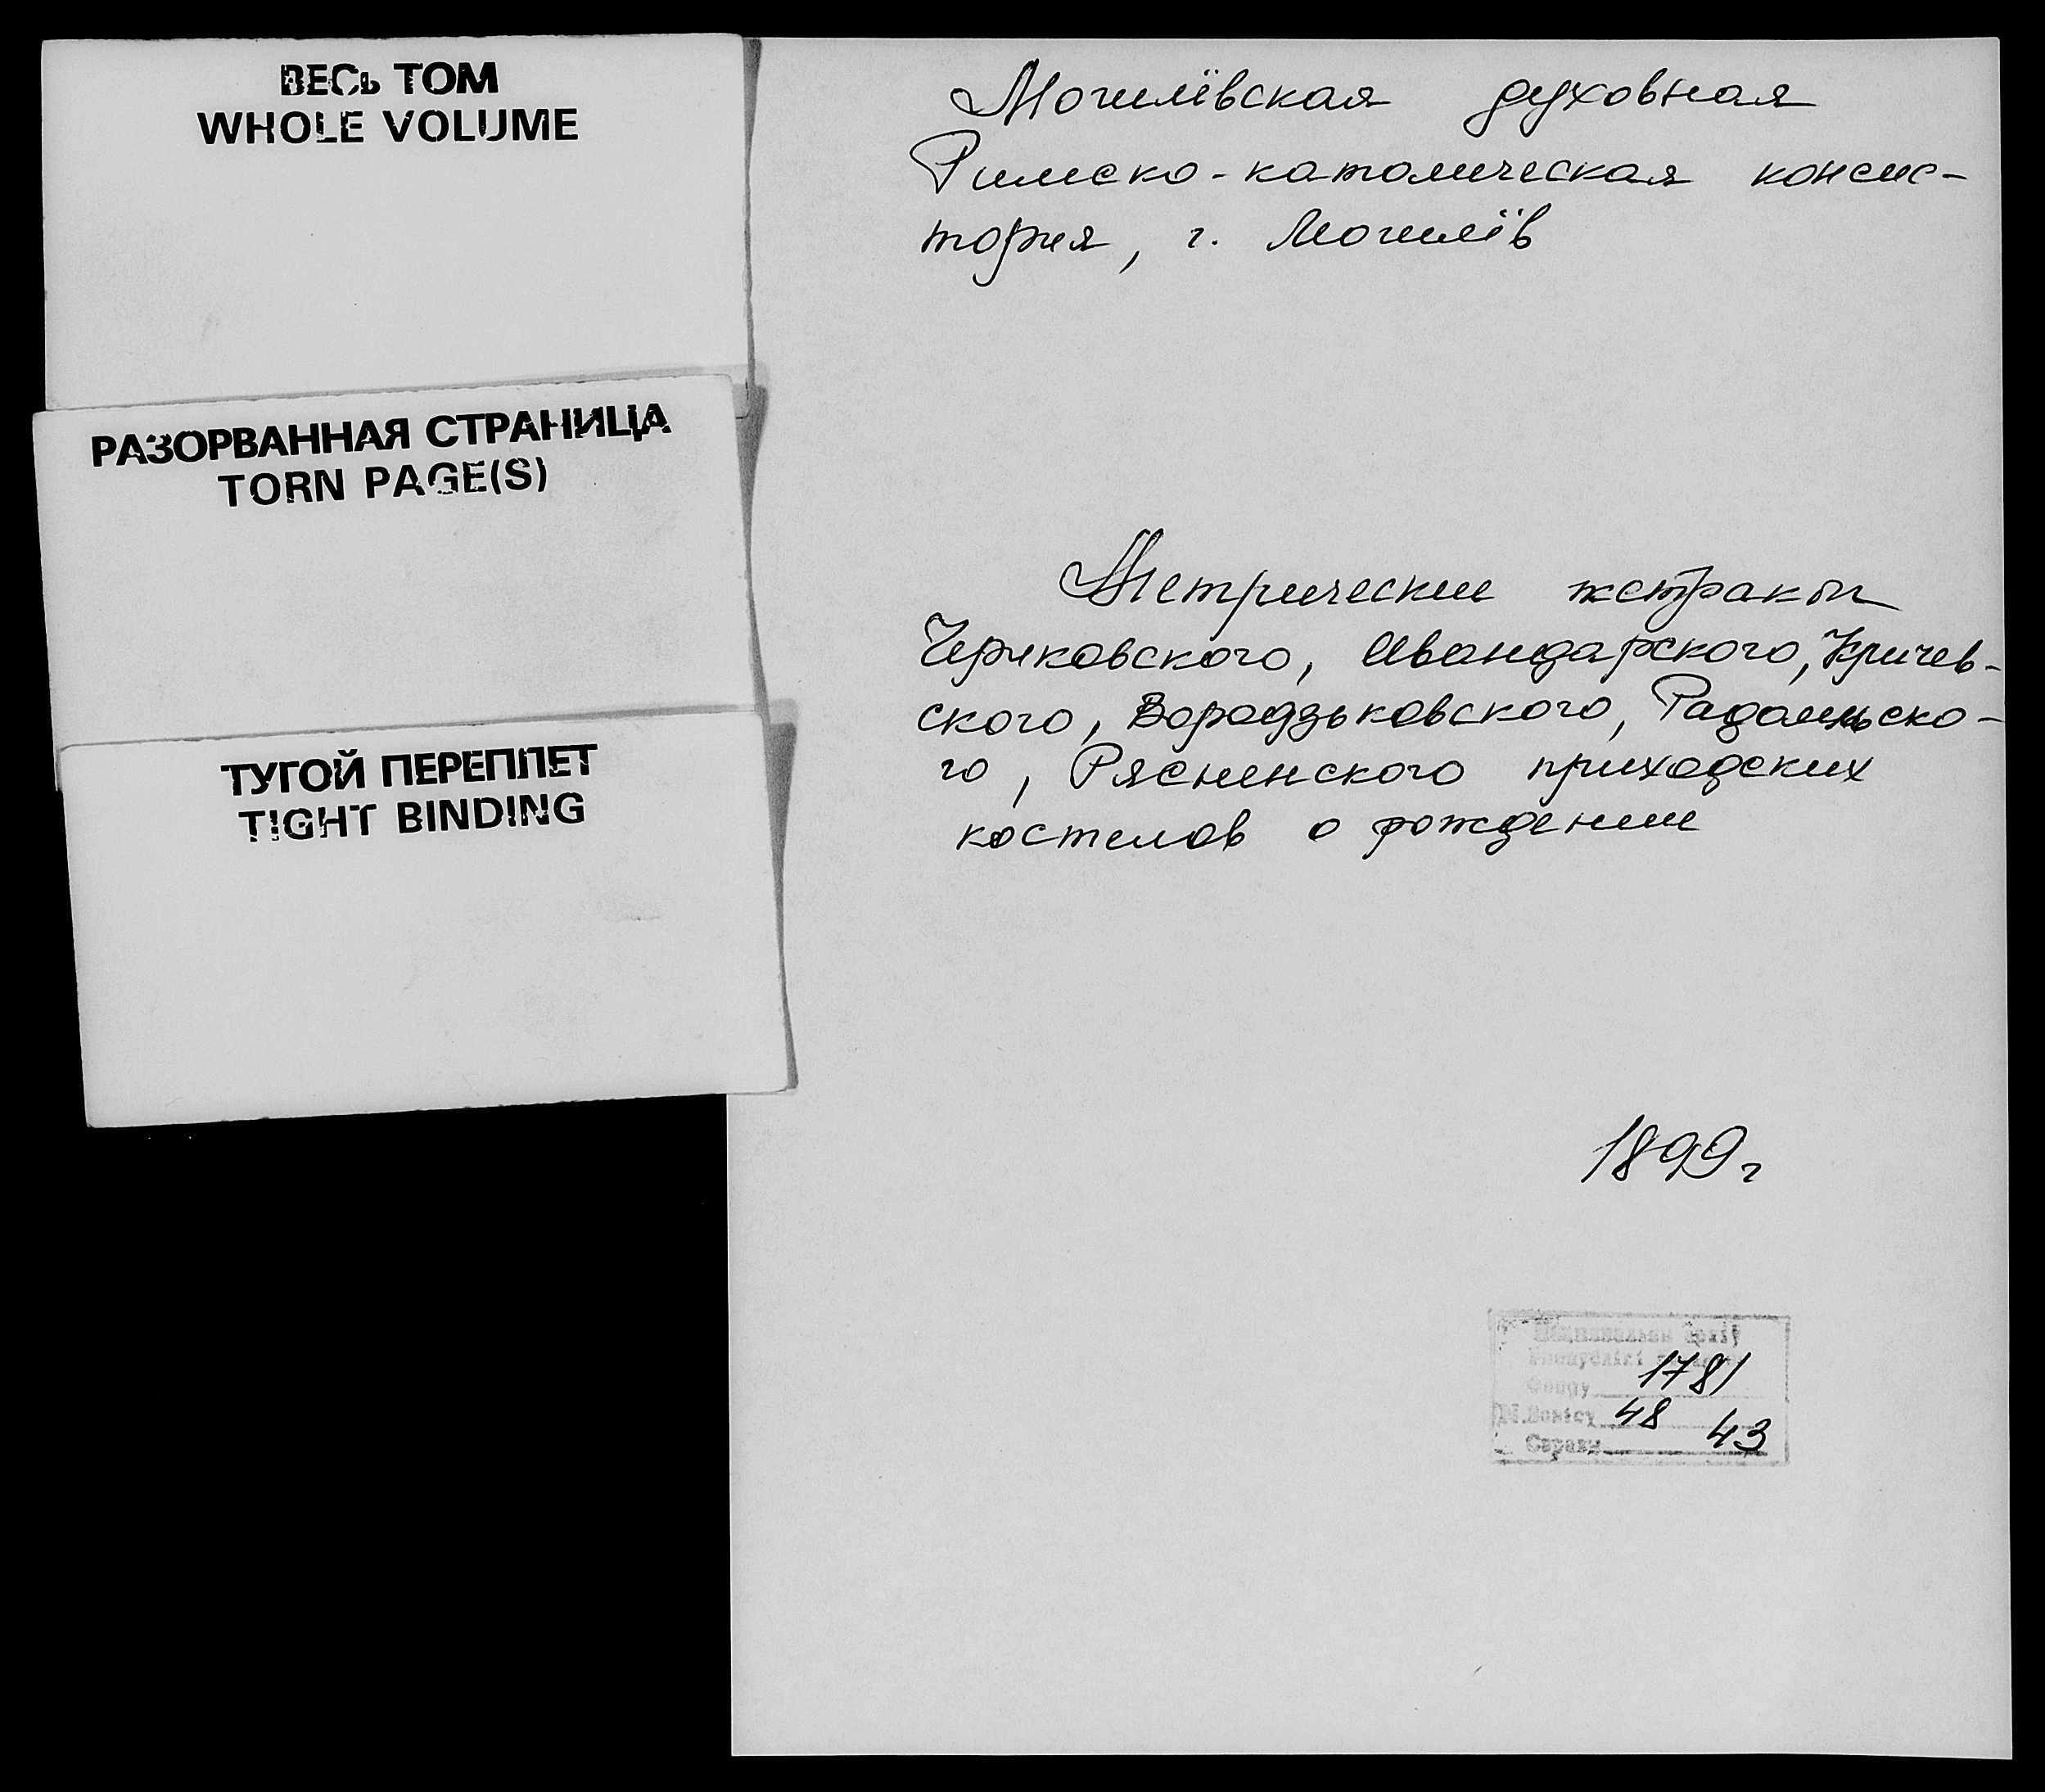 ВЕСЬ ТОМ
WHOLE VOLUME
РАЗОРВАННАЯ СТРАНИЦА
TORN PAGE(S)
ТУГОЙ ПЕРЕПЛЕТ
TIGHT BINDING
Могилёвская духовная
Римско-католическая консис-
тория, г. Могилёв
Метрические экстракты
Чериковского, Свандарского, Кричев-
ского, Вородзьковского, Радомльско-
го, Рясненского приходских
костелов о рождении
1899г
Нацыянальны архіў
Рэспублікі
Фонду 1781
Вопісу 48
Справа 43